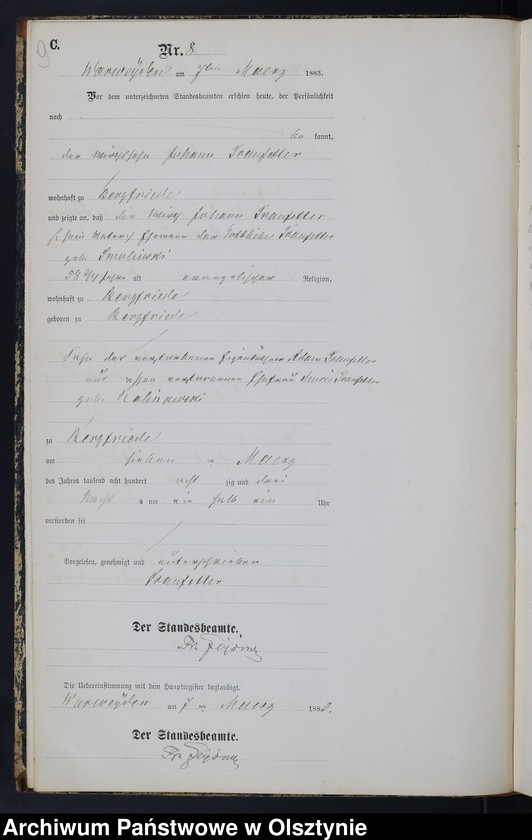 9
C.
Nr. 8
Warweyden am 7ten Maerz 1883.
Vor dem unterzeichneten Standesbeamten erschien heute, der Persönlichkeit
nach
be kannt,
der Wirthssohn Johann Trausetter
wohnhaft zu Bergfriede
und zeigte an, daß der Wirth Johann Trausetter
Ehemann der Gottliebe Trausetter
geb. Smolinski
58 3/4 Jahre alt evangelischer Religion,
wohnhaft zu Bergfriede
geboren zu Bergfriede
Sohn der verstorbenen Eigenkäthner Adam Trausetter
und dessen verstorbenen Ehefrau Marie Trausetter
geb. Kalinowski
zu Bergfriede
am sieben ten Maerz
des Jahres tausend acht hundert acht zig und drei
Nachts um ein halb ein Uhr
verstorben sei
Vorgelesen, genehmigt und unterschrieben
Trausetter
Der Standesbeamte.
Die Uebereinstimmung mit dem Hauptregister beglaubigt.
Warweyden am 7 ten Maerz 1883.
Der Standesbeamte.
Archiwum Państwowe w Olsztynie